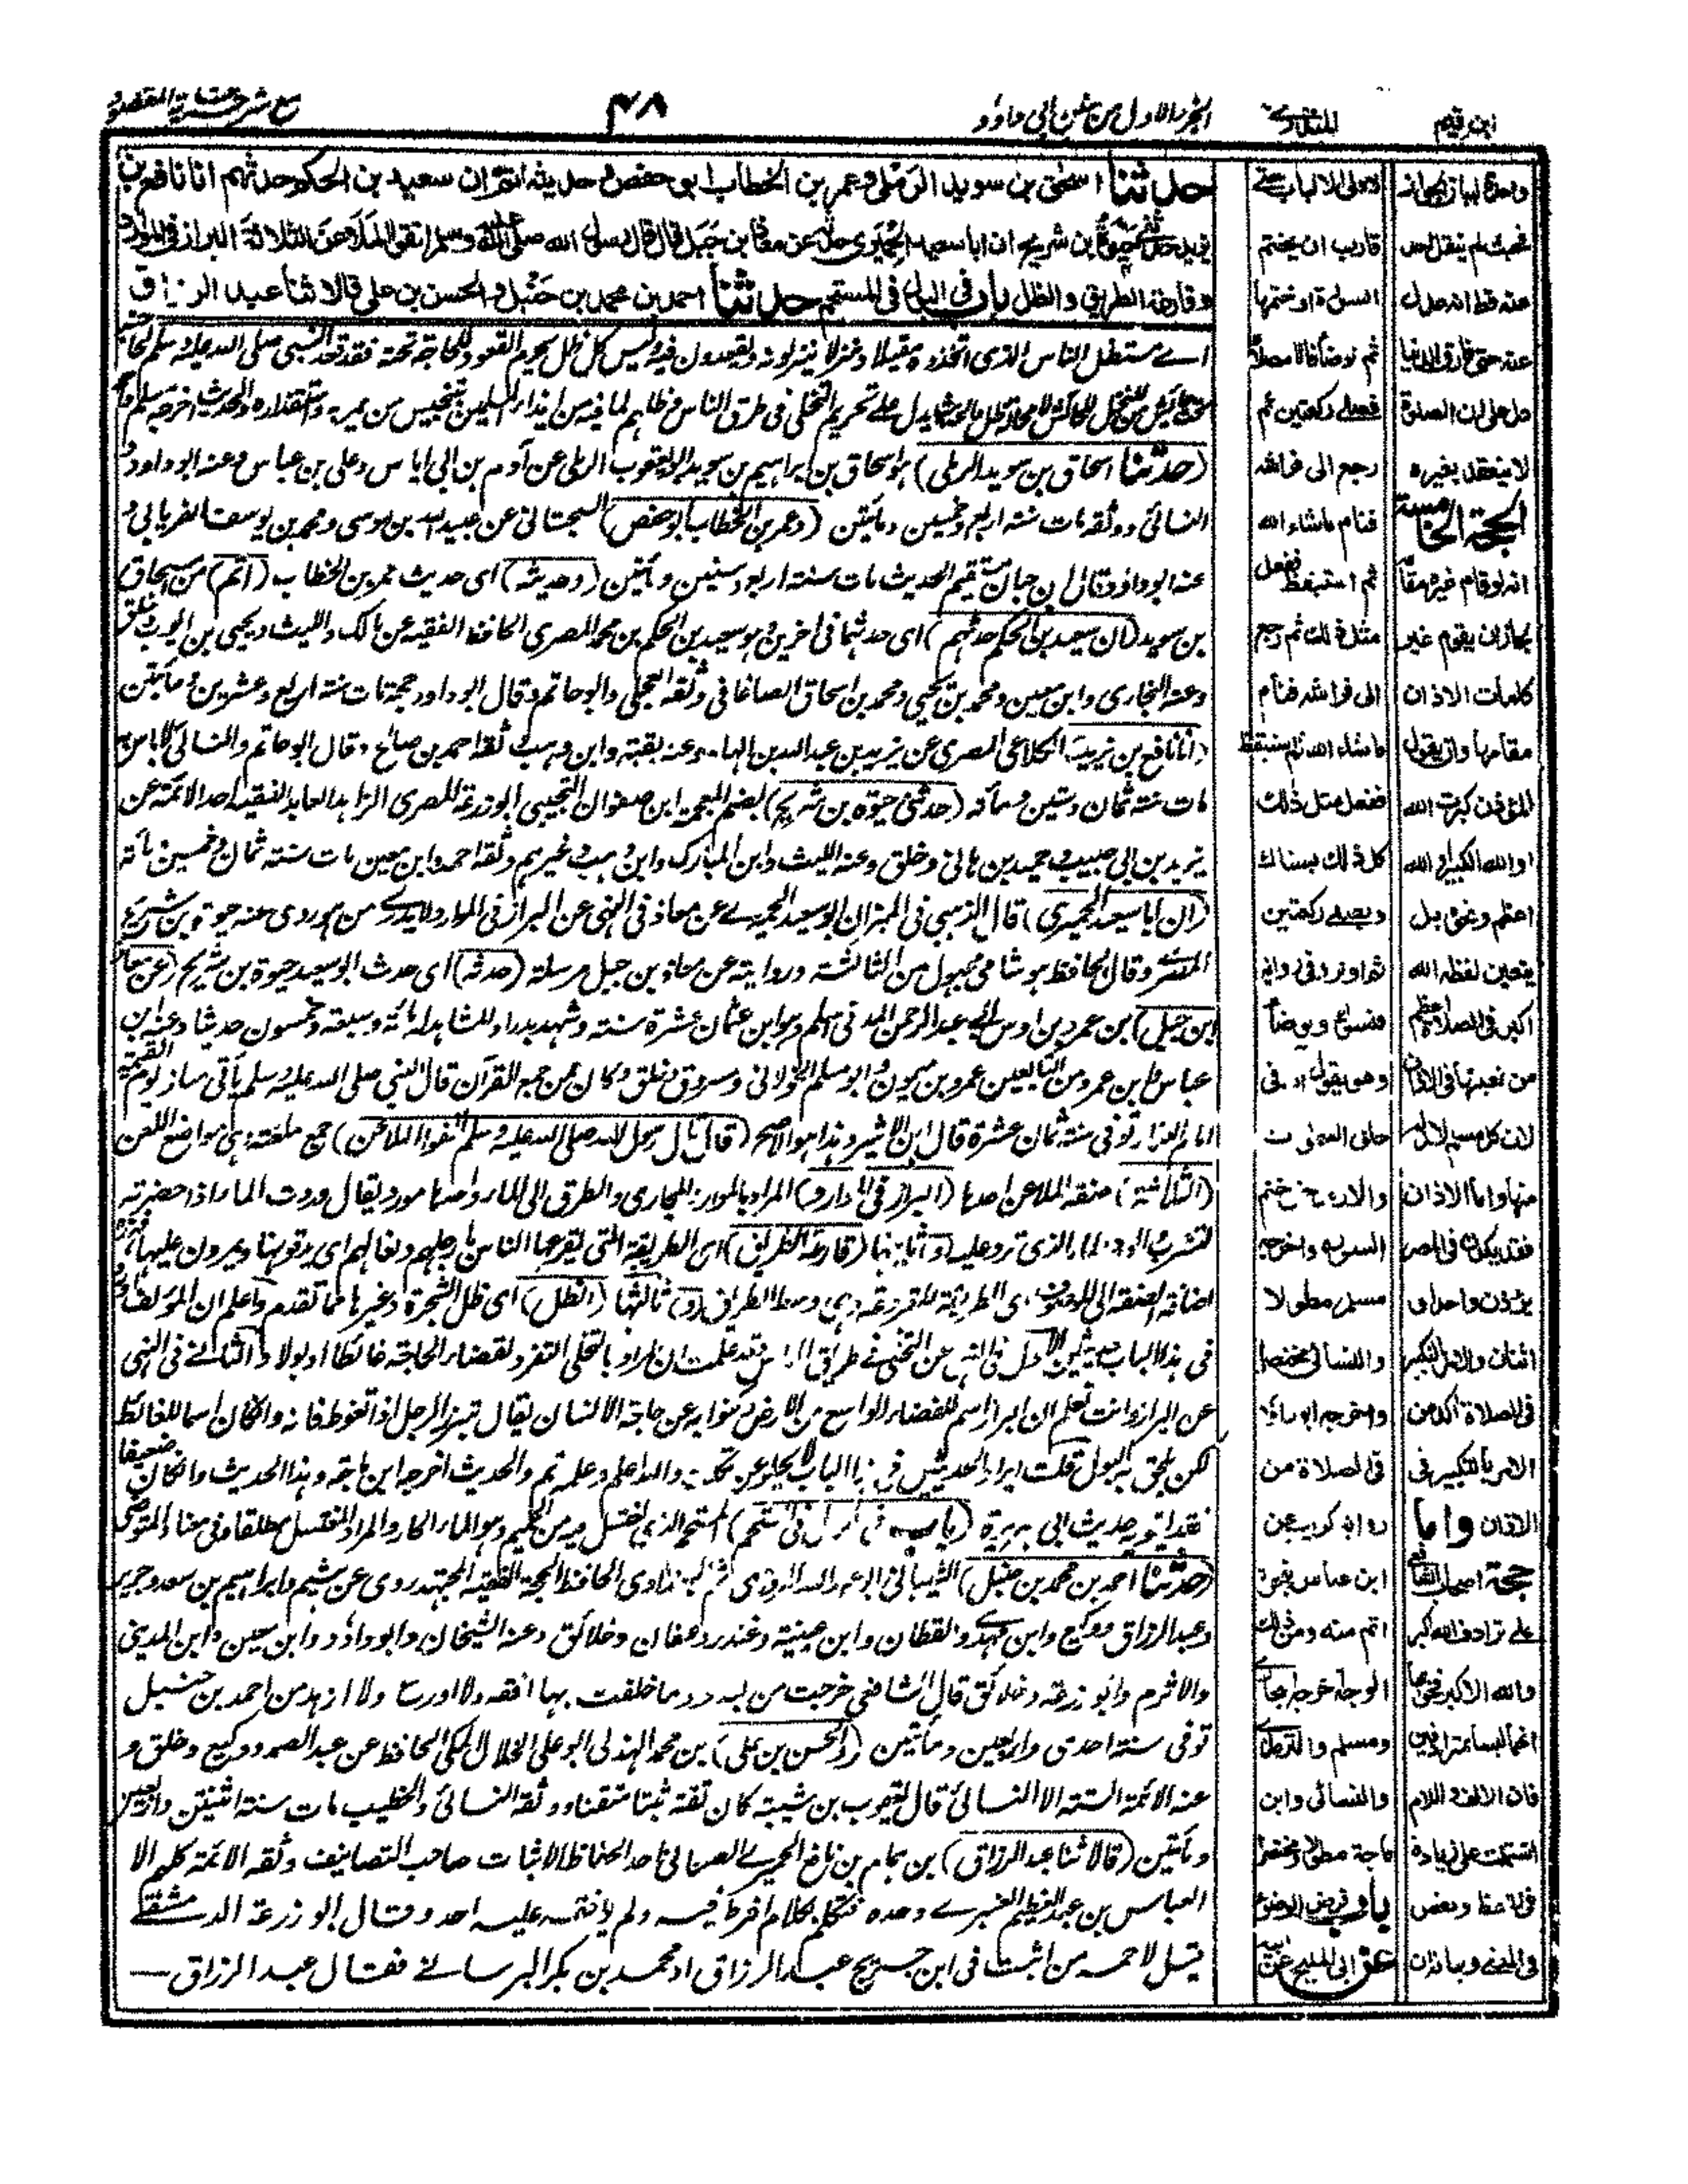 ابن قيم
المنذري
الجزء الاول من سنن ابي داود
٤٨
مع شرحه غاية المقصود
حدثنا اسحق بن سويد الرملي وعمر بن الخطاب ابو حفص وحديثه اتم ان سعيد بن الحكم حدثهم انا نافع بن
يزيد حدثني حيوة بن شريح ان ابا سعيد الحميري حدثه عن معاذ بن جبل قال قال رسول الله صلى الله عليه وسلم اتقوا الملاعن الثلاثة البراز في الموارد
وقارعة الطريق والظل باب في البول في المستحم حدثنا احمد بن محمد بن حنبل والحسن بن علي قالا ثنا عبد الرزاق
اے مستظل الناس الذي اتخذوه مقيلا ومنزلا ينزلونه ويقعدون فيه وليس كل ظل يحرم القعود للحاجة تحته فقد قعد النبي صلى الله عليه وسلم لحاجته
يدل على تحريم التخلي في طرق الناس وظلهم لما فيه من ايذاء المسلمين بتنجيس من يمر به واستقذاره والحديث اخرجه مسلم
(حدثنا اسحاق بن سويد الرملي) هو اسحاق بن ابراهيم بن سويد ابو يعقوب الرملي عن آدم بن ابي اياس وعلي بن عباس وعنه ابو داود و
النسائي ووثقه مات سنة اربع وخمسين ومأتين (وعمر بن الخطاب ابو حفص) السجستاني عن عبيد الله بن موسى ومحمد بن يوسف الفريابي و
عنه ابو داود وقال ابن حبان مستقيم الحديث مات سنة اربع وستين ومأتين (وحديثه) اى حديث عمر بن الخطاب (اتم) من اسحاق
بن سويد (ان سعيد بن الحكم حدثهم) اى حدثهما في آخرين وهو سعيد بن الحكم بن محمد المصري الحافظ الفقيه عن مالك والليث ويحيى بن ايوب وخلق
وعنه البخاري وابن معين ومحمد بن يحيى ومحمد بن اسحاق الصاغاني وثقه العجلي وابو حاتم وقال ابو داود حجة مات سنة اربع وعشرين ومأتين
(انا نافع بن يزيد) الكلاعي المصري عن يزيد بن عبد الله بن الهاد وعنه بقية وابن وهب وثقه احمد بن صالح وقال ابو حاتم والنسائي لا باس به
مات سنة ثمان وستين ومأته (حدثني حيوة بن شريح) بضم المعجمة ابن صفوان التجيبي ابو زرعة المصري الزاهد العابد الفقيه احد الائمة عن
يزيد بن ابي حبيب وحميد بن هاني وخلق وعنه الليث وابن المبارك وابن وهب وغيرهم وثقه احمد وابن معين مات سنة ثمان وخمسين مأته
(ان ابا سعيد الحميري) قال الذهبي في الميزان ابو سعيد الحميرے عن معاذ في النهي عن البراز في الموارد لا يدرے من هو روى عنه حيوة بن شريح
المصري وقال الحافظ هو شامي مجهول من الثالثة وروايته عن معاذ بن جبل مرسلة (حدثه) اى حدث ابو سعيد حيوة بن شريح (عن معاذ
ابن جبل) ابن عمرو بن اوس ابو عبد الرحمن المدني اسلم وهو ابن ثمان عشرة سنة وشهد بدرا والمشاهد له مائة وسبعة وخمسون حديثا وعنه ابن
عباس وابن عمر ومن التابعين عمرو بن ميمون وابو مسلم الخولاني ومسروق وخلق وكان ممن جمع القرآن قال النبي صلى الله عليه وسلم يأتي معاذ يوم القيمة
امام العلماء توفي سنة ثمان عشرة قال ابن الاثير وهذا هو الاصح (قال قال رسول الله صلى الله عليه وسلم اتقوا الملاعن) جمع ملعنة وهي مواضع اللعن
(الثلاثة) صفة الملاعن احدها (البراز في الموارد) المراد بالموارد المجاري والطرق الى الماء واحدها مورد يقال وردت الماء اذا حضرته
لتشرب الورد الماء الذي ترد عليه (و) ثانيها (قارعة الطريق) اى الطريقة التي يقرعها الناس بارجلهم ونعالهم اى يدقونها ويمرون عليها
اضافة الصفة الى الموصوف اى الطريقة المقروعة وهي وسط الطريق (و) ثالثها (الظل) اى ظل الشجرة وغيرها مما تقدم واعلم ان المؤلف
في هذا الباب حديثين الاول في النهي عن التخلي في طريق الناس وقد علمت ان المراد بالتخلي التفرد لقضاء الحاجة غائطا او بولا والثانے في النهي
عن البراز وانت تعلم ان البراز اسم للفضاء الواسع من الارض وكنوا به عن حاجة الانسان يقال تبرز الرجل اذا تغوط فانه وان كان اسما للغائط
لكن يلحق به البول قلت ايراد الحديثين في هذا الباب لا يخلو عن تكلف والله اعلم وعلمه تم والحديث اخرجه ابن ماجة وهذا الحديث وان كان ضعيفا
(باب في البول في المستحم) المستحم الذي يغتسل فيه من الحميم وهو الماء الحار والمراد المغتسل مطلقا وفي معناه المتوضى
(حدثنا احمد بن محمد بن حنبل) الشيباني ابو عبد الله المروزي ثم البغدادي الحافظ الحجة الفقيه المجتهد روى عن هشيم وابراهيم بن سعد وجرير
وعبد الرزاق ووكيع وابن مهدے والقطان وابن عيينة وغندر وعفان وخلائق وعنه الشيخان وابو داود وابن معين وابن المديني
والاثرم وابو زرعة وخلائق قال الشافعي خرجت من بغداد وما خلفت بها افقه ولا اورع ولا ازهد من احمد بن حنبل
توفي سنة احدى واربعين ومأتين (والحسن بن علي) بن محمد الهذلي ابو علي الخلال المكي الحافظ عن عبد الصمد ووكيع وخلق و
عنه الائمة الستة الا النسائي قال يعقوب بن شيبة كان ثقة ثبتا متقنا ووثقه النسائي والخطيب مات سنة اثنتين واربعين
ومأتين (قالا ثنا عبد الرزاق) بن همام بن نافع الحميرے الصنعاني احد الحفاظ الاثبات صاحب التصانيف وثقه الائمة كلهم الا
العباس بن عبد العظيم العنبرے وحده فتكلم بكلام افرط فيه ولم يوافقه عليه احد وقال ابو زرعة الدمشقے
قيل لاحمد من اثبت في ابن جريج عبد الرزاق او محمد بن بكر البرسانے فقال عبد الرزاق
الاولى الالباب حتے
قارب ان يختم
السورة او ختمها
ثم توضأ فاتا مصلاه
فصلے ركعتين ثم
رجع الى فراشه
فنام ماشاء الله
ثم استيقظ ففعل
مثل ذلك ثم رجع
الى فراشه فنام
ماشاء الله ثم استيقظ
ففعل مثل ذلك
كل ذلك يستاك
ويصلے ركعتين
ثم اوتر وفي رواية
فتسوك وتوضأ
وهو يقول ان في
خلق السموات
والارض حتى ختم
السورة واخرجه
مسلم مطولا
والنسائي مختصرا
واخرجه ابو داود
في الصلاة من
رواية كريب عن
ابن عباس بنحوه
اتم منه ومن ذلك
الوجه اخرجه البخارے
ومسلم والترمذے
والنسائي وابن
ماجة مطولا ومختصرا
باب فرض الوضوء
عن ابي المليح عن ابيه
فحيث لم ينقل احد
عنه قط انه عدل
عنه حتى فارق الدنيا
دل على ان الصلوة
لا ينعقد بغيره
الحجة الخامسة
انه لو قام غيره مقامه
لجاز ان يقوم غير
كلمات الاذان
مقامها وان يقول
المؤذن كبرت الله
او الله الكبير او الله
اعظم ونحوه بل
تعين لفظة الله
اكبر في الصلاة اعظم
من تعينها في الاذان
لان كل مسلم لا بد له
منها واما الاذان
فقد يكون في المصر
مؤذن واحد او
اثنان والامر بالتكبير
في الصلاة آكد من
الامر بالتكبير في
الاذان واما
حجة اصحاب الشافعي
علے ترادف الله اكبر
والله الاكبر فجوابها
انهما ليسا بمترادفين
فان الالف واللام
اشتملت على زيادة
في اللفظ ونقص
في المعنے وبيانه ان